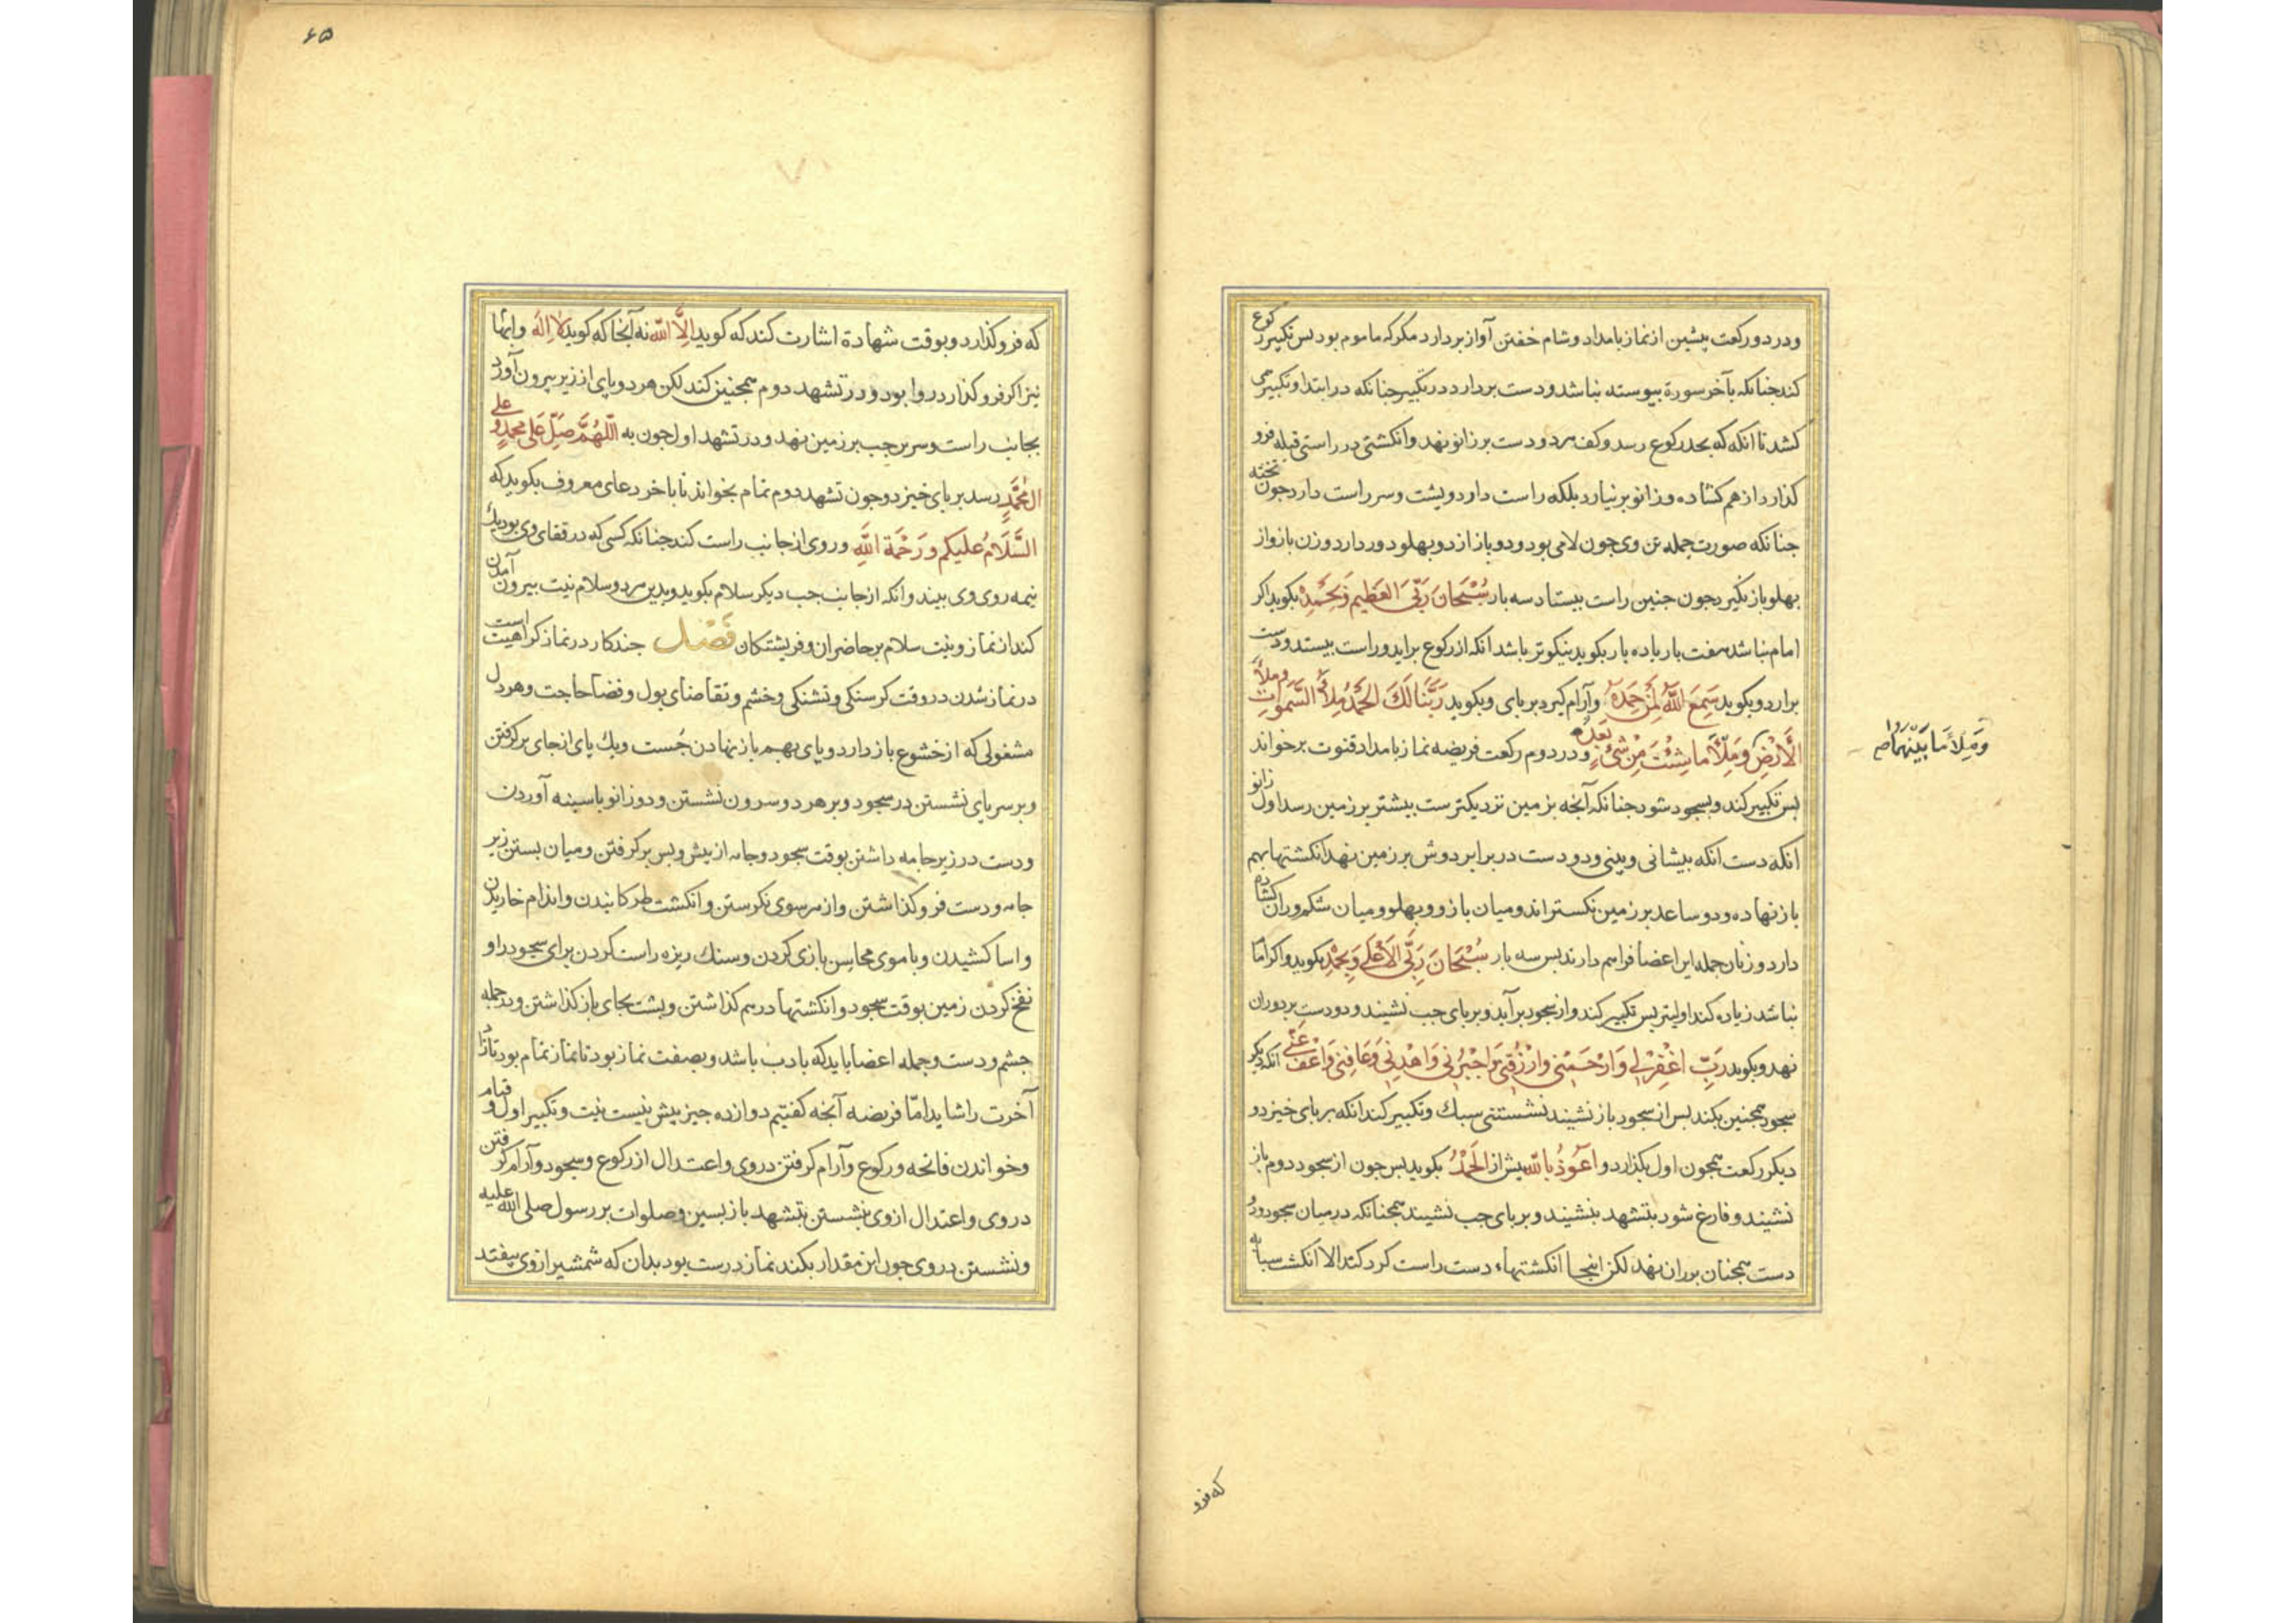 ودر دو رکعت پیشین از نماز بامداد و شام خفتن آواز بردارد مکر که ماموم بود بس تکبیر رکوع
کند جنانکه بآخر سورة بیوسته نباشد ودست بردارد در تکبیر جنانکه در ابتدا و تکبیر می
کشد تا انکه که بحد رکوع رسد وکف هر دو دست بر زانو نهد وانکشتی در راستی قبله فرو
کذارد از هم کشاده و زانو برنیارد بلکه راست دارد وپشت وسر راست دارد جون تخته
جنانکه صورت جمله تن وی جون لامی بود ودو بازو از دو بهلو دور دارد وزن بازو از
بهلو باز نکیرد جون جنین راست بیستاد سه بار سُبْحَانَ رَبِّیَ العَظیمِ وَبِحَمْدِهِ بکوید اکر
امام نباشد هفت بار یا ده بار بکوید نیکوتر باشد انکه از رکوع براید وراست بیستد ودست
برارد وبکوید سَمِعَ اللّٰهُ لِمَنْ حَمِدَهُ وآرام کیرد بر پای وبکوید رَبَّنَا لَكَ الحَمْدُ مِلأَ السَّمٰوَاتِ وملأَ
الْأَرْضِ وَمِلأَ ما شِئْتَ مِنْ شَیْءٍ بَعْدُ ودر دوم رکعت فریضه نماز بامداد قنوت برخواند
وَمِلأَ مَا بَیْنَهُمَا
بس تکبیر کند وبسجود شود جنانکه آنجه بزمین نزدیکترست بیشتر بر زمین رسد اول زانو
انکه دست انکه بیشانی وبینی ودو دست در برابر دوش بر زمین نهد انکشتها بهم
باز نهاده ودو ساعد بر زمین نکستراند ومیان بازو وبهلو ومیان شکم وران کشاده
دارد وزنان جمله این اعضا فراهم دارند بس سه بار سُبْحَانَ رَبِّیَ الاَعْلٰی وَبِحَمْدِهِ بکوید واکر امام
نباشد زیاده کند اولیتر بس تکبیر کند واز سجود برآید وبر پای جب نشیند ودو دست بر دو ران
نهد وبکوید رَبِّ اغْفِرْلِی وَارْحَمْنِی وارْزُقْنِی وَاجْبُرْنی وَاهْدِنِی وَعَافِنِی وَاعْفُ عَنِّی انکه دیکر
سجود همجنین بکند بس از سجود باز نشیند نشستنی سبك وتکبیر کند انکه بر پای خیزد و
دیکر رکعت همجون اول بکذارد و اَعُوذُ بِاللّٰه پیش از اَلحَمْدُ بکوید بس جون از سجود دوم باز
نشیند وفارغ شود بتشهد بنشیند وبر پای جب نشیند همجنانکه در میان سجود ودو
دست همجنان بر ران نهد لکن اینجا انکشتهاء دست راست کرد کند الا انکشت سبابه
که فرو
۶۵
که فرو کذارد وبوقت شهادة اشارت کند که کوید اِلَّا اللّٰه نه آنجا که کوید لا اِلٰهَ وابهام
نیز اکر فرو کذارد روا بود ودر تشهد دوم همجنین کند لکن هر دو پای از زیر بیرون آورد
بجانب راست وسرین جب بر زمین نهد ودر تشهد اول جون به اَللّٰهُمَّ صَلِّ عَلٰی مُحَمَّدٍ وعلی
اٰلِ مُحَمَّدٍ رسد بر پای خیزد وجون تشهد دوم تمام بخواند تا باخر دعای معروف بکوید که
السَّلَامُ عَلیکم ورَحْمَةُ اللّٰهِ وروی از جانب راست کند جنانکه کسی که در قفای وی بود یك
نیمه روی وی بیند وانکه از جانب جب دیکر سلام بکوید وبدین هر دو سلام نیت بیرون آمدن
کند از نماز ونیت سلام بر حاضران وفریشتکان فَصْل جند کار در نماز کراهیت است
در نماز شدن در وقت کرسنکی وتشنکی وخشم وتقاضای بول وقضا حاجت وهر دل
مشغولی که از خشوع باز دارد وپای بهم باز نهادن جُست ویك پای از جای بر کرفتن
وبر سر پای نشستن در سجود وبر هر دو سرون نشستن ودو زانو با سینه آوردن
ودست در زیر جامه داشتن بوقت سجود وجامه از پیش وبس بر کرفتن ومیان بستن زیر
جامه ودست فرو کذاشتن واز هر سوی نکرستن وانکشت طرکانیدن واندام خاریدن
واسا کشیدن وبا موی محاسن بازی کردن وسنك ریزه راست کردن برای سجود را و
نفخ کردن زمین بوقت سجود وانکشتها درهم کذاشتن وپشت بجای باز کذاشتن ودر جمله
جشم ودست وجمله اعضا باید که بادب باشد وبصفت نماز بود تا نماز تمام بود تا زاد
آخرت را شاید امّا فریضه آنجه کفتیم دوازده جیز بیش نیست نیت وتکبیر اول و قیام
وخواندن فاتحه ورکوع وآرام کرفتن در وی واعتدال از رکوع وسجود وآرام کرفتن
در وی واعتدال از وی نشستن بتشهد باز بسین وصلوات بر رسول صلی اللّٰه علیه
ونشستن در وی جون این مقدار بکند نماز درست بود بدان که شمشیر از وی بیفتد